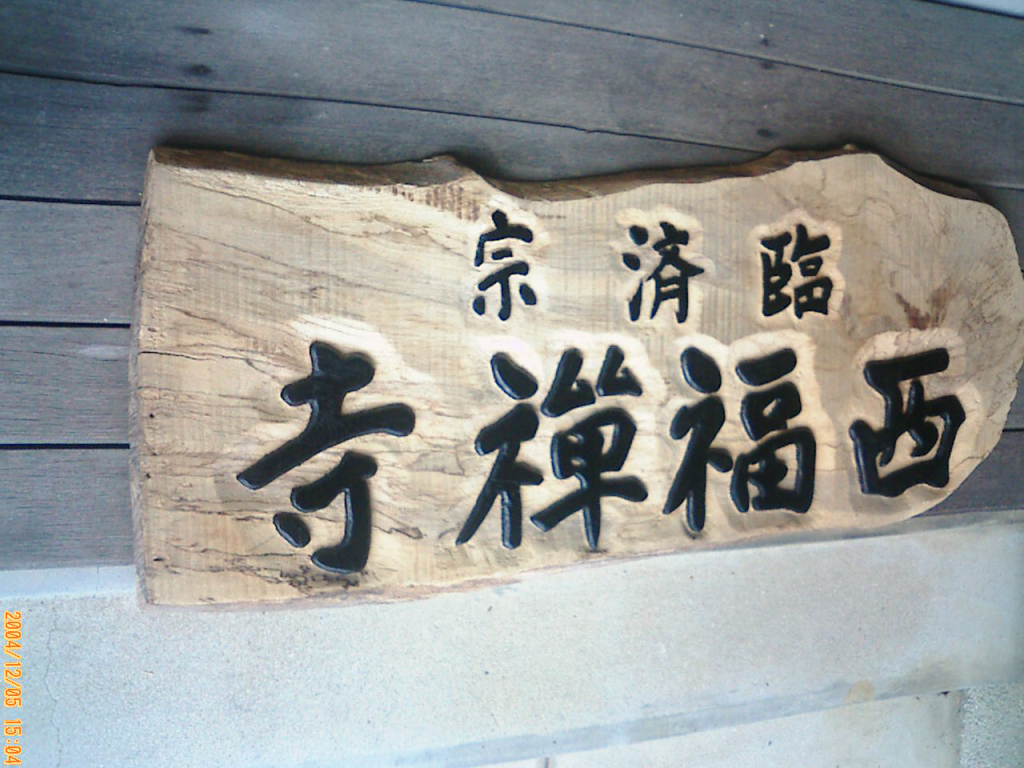 臨済宗
西福禅寺
2004/12/05 15:04